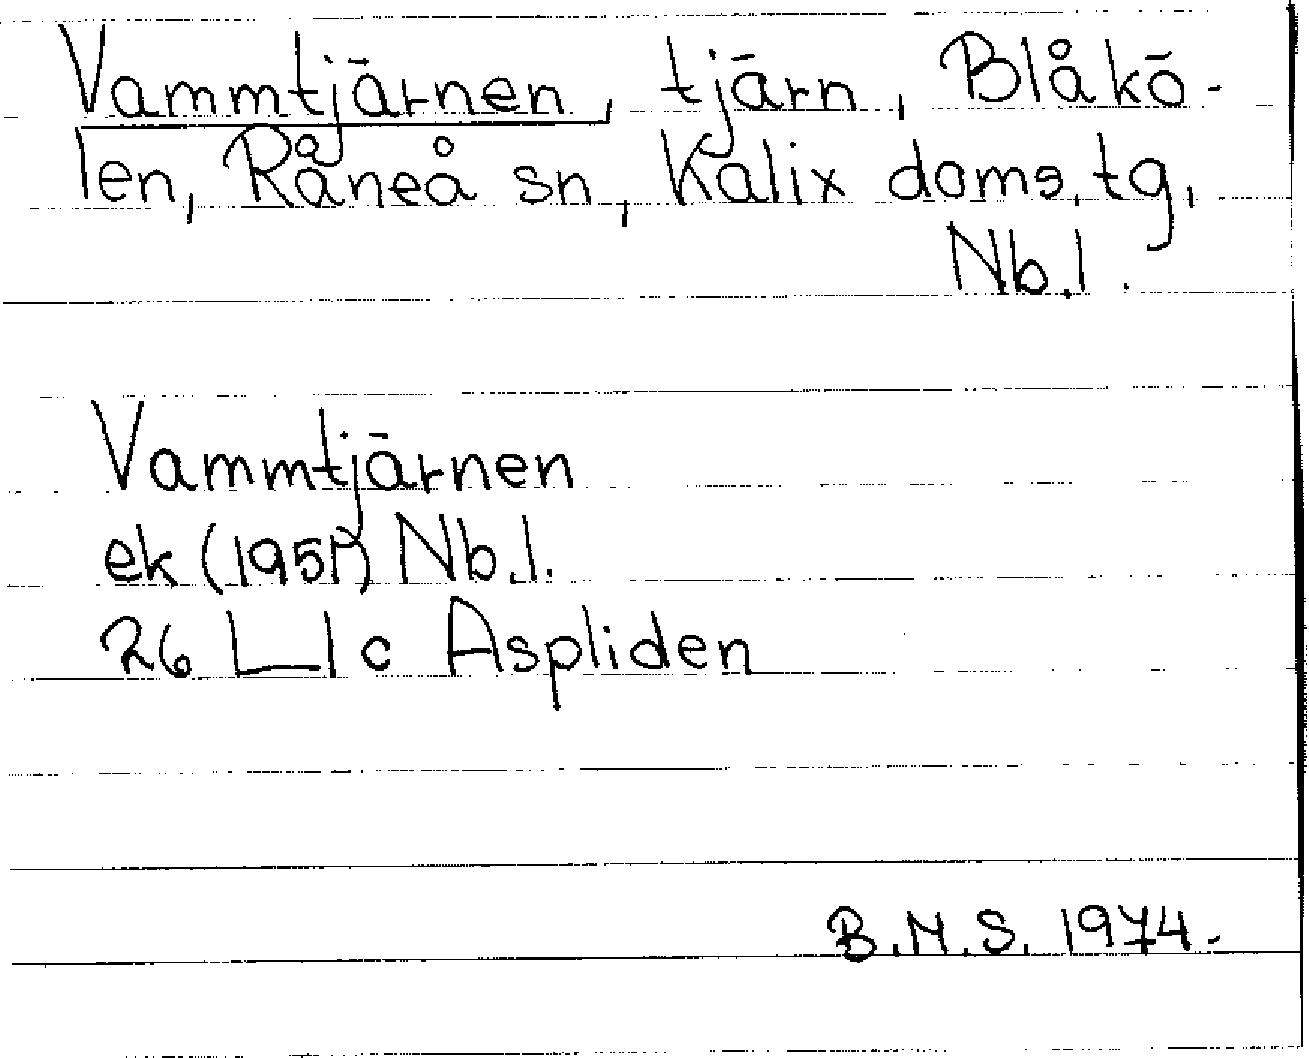 Vammtjärnen, tjärn, Blåkö-
len, Råneå sn, Kalix doms. tg,
Nb.l.
Vammtjärnen
ek (1951) Nb.l.
26 L1c Aspliden
B.M.S. 1974.